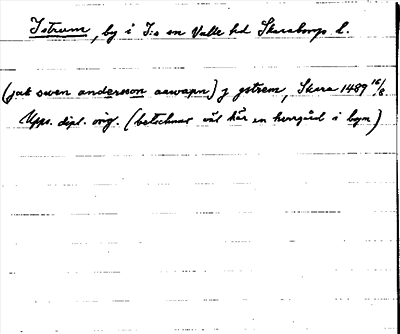 Istrum, by i I:s sn Valle hd Skaraborgs l.
(jak swen andersson aawapn) j ystrem, Skara 1489 16/8
Upps. dipl. orig. (betecknar väl här en herrgård i byn)